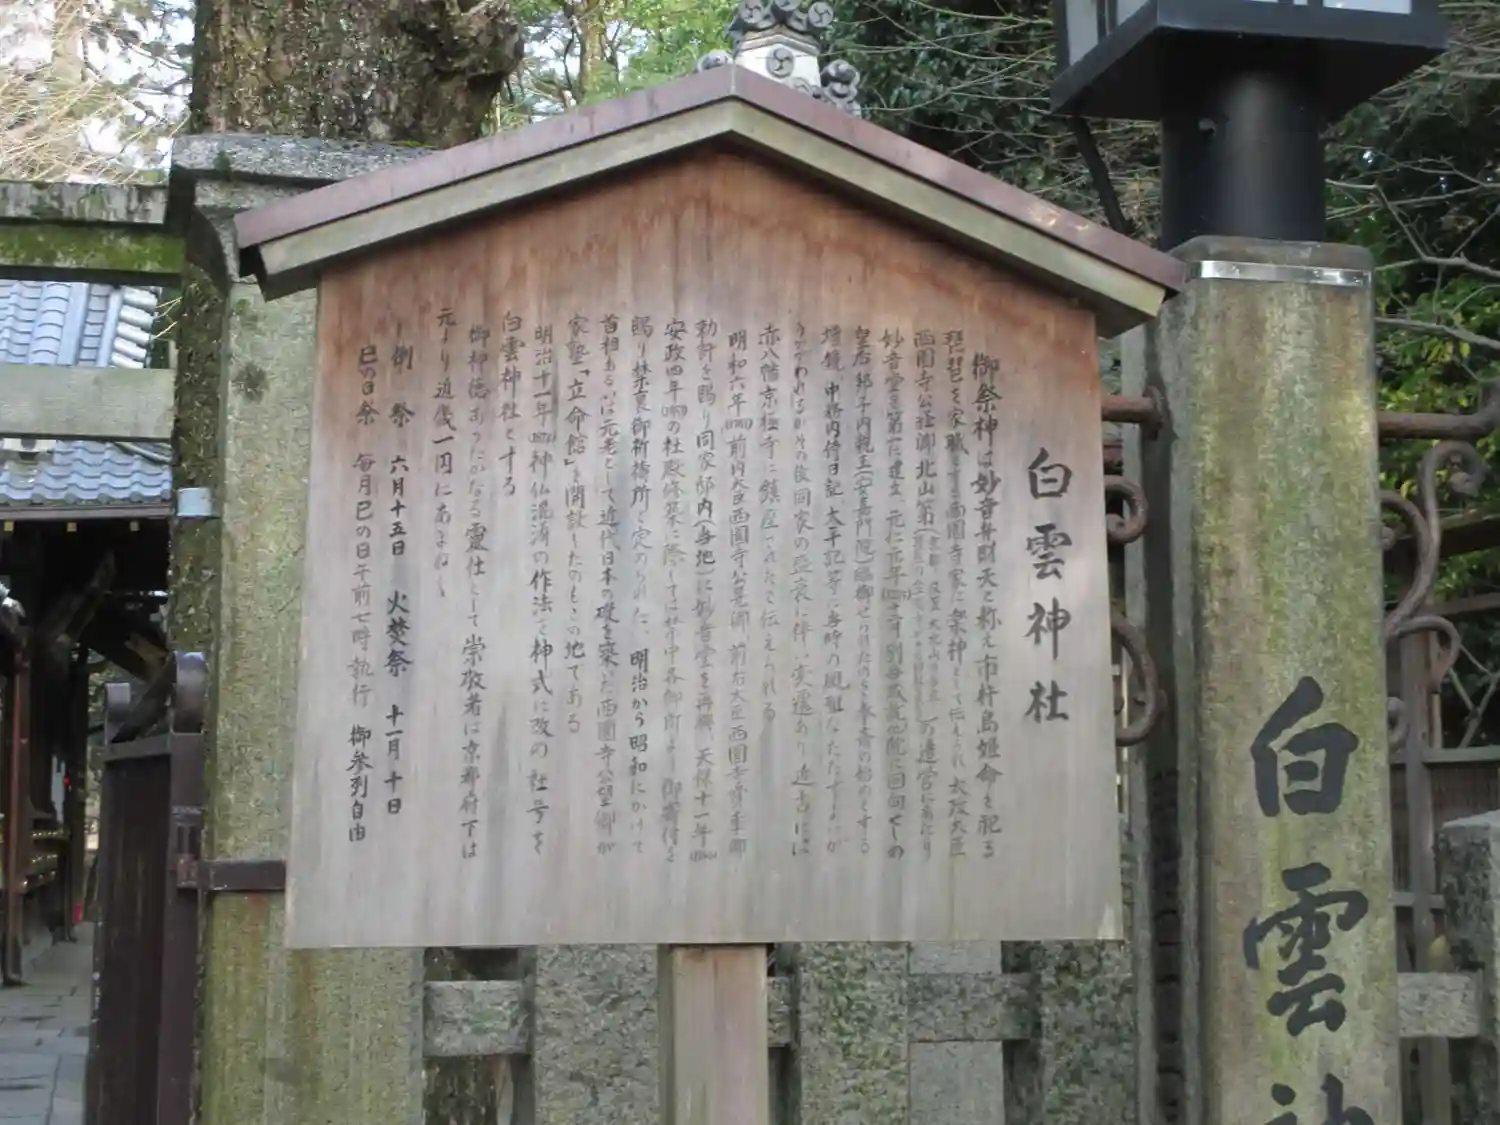 白雲神社
御祭神は妙音弁財天と称え市杵島姫命を祀る
琵琶を家職とする西園寺家に楽神として伝えられ 太政大臣
西園寺公経卿北山第 の造営にあたり
妙音堂を第一に建立 元仁元年(1224)
皇后邦子内親王(安嘉門院)臨御せられたのを奉斎の始めとする
増鏡、中務内侍日記、太平記等に当時の風雅なたたずまいが
うかがわれるがその後同家の盛衰に伴い変遷あり 近古には
赤八幡京極寺に鎮座されたと伝えられる
明和六年(1769)前内大臣西園寺公晃卿、前右大臣西園寺賞季卿
勅許を賜り同家邸内(当地)に妙音堂を再興、天保十一年(1840)
安政四年(1857)の社殿修築に際しては禁中各御所より御寄付を
賜り禁裏御祈祷所と定められた、明治から昭和にかけて
首相あるいは元老として近代日本の礎を築いた西園寺公望卿が
家塾「立命館」を開設したのもこの地である
明治十一年(1878)神仏混淆の作法を神式に改め 社号を
白雲神社とする
御神徳あらたかなる霊仕として 崇敬者は京都府下は
元より近畿一円にあまねし
一 例祭 六月十五日 火焚祭 十一月十日
巳の日祭 毎月巳の日午前七時執行 御参列自由
白雲神